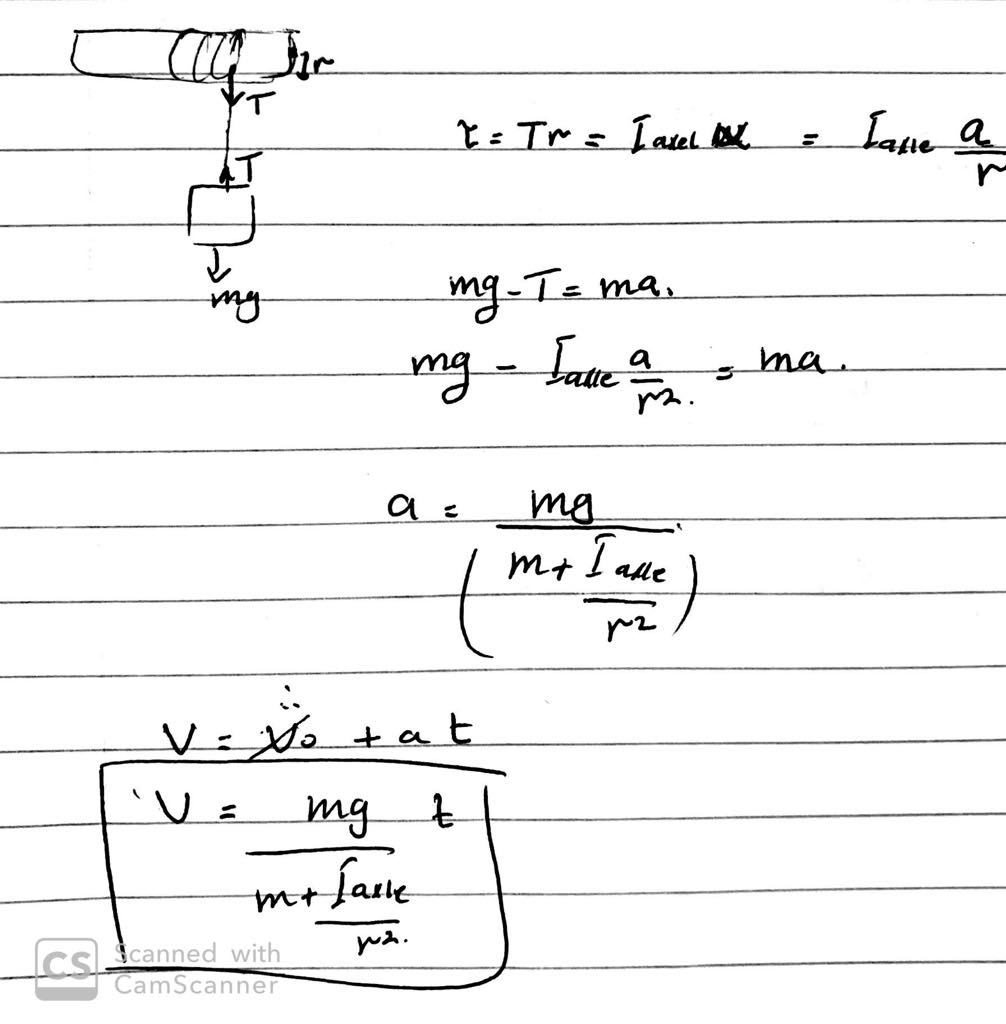 r
T
T
mg
τ = Tr = I axel α = I axle a/r
mg - T = ma.
mg - I axle a/r2. = ma.
a = mg / (m + I axle/r2)
V = V0 + at
V = mg / (m + I axle/r2.) t
CS Scanned with
CamScanner